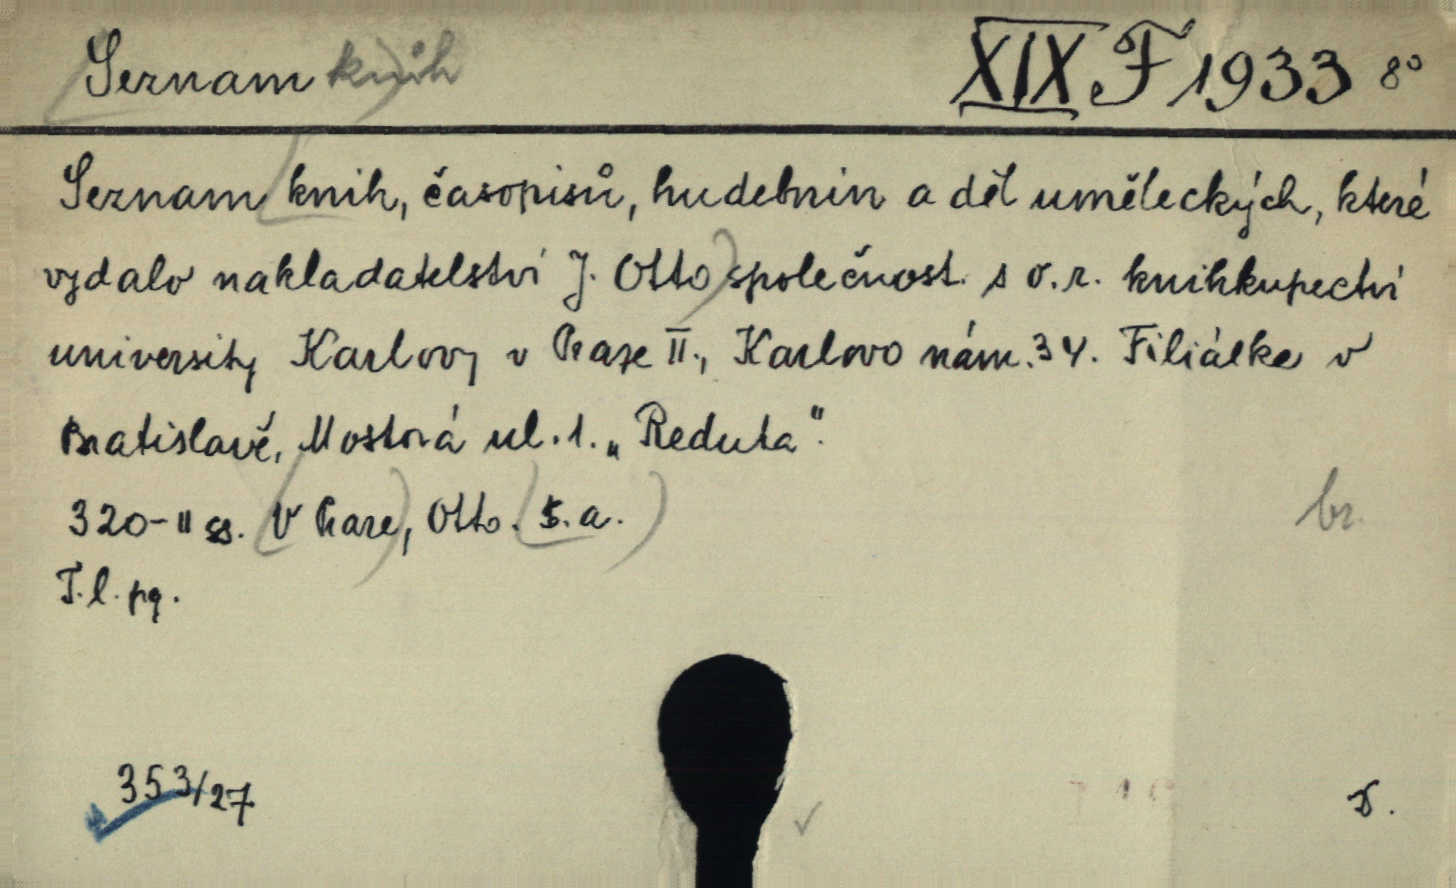 Seznam knih XIX F 1933 8°
Seznam knih, časopisů, hudebnin a děl uměleckých, které
vydalo nakladatelství J. Otto společnost s o.r. knihkupectví
university Karlovy v Praze II., Karlovo nám. 34. Filiálka v
Bratislavě, Mostová ul. 1. „Reduta".
320-II ss. V Praze, Otto. S.a. br.
T. l. pq.
353/27